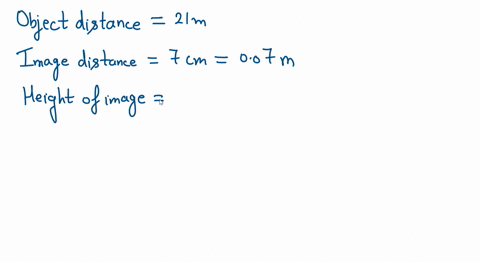 Object distance = 21m
Image distance = 7 cm = 0.07 m
Height of image =